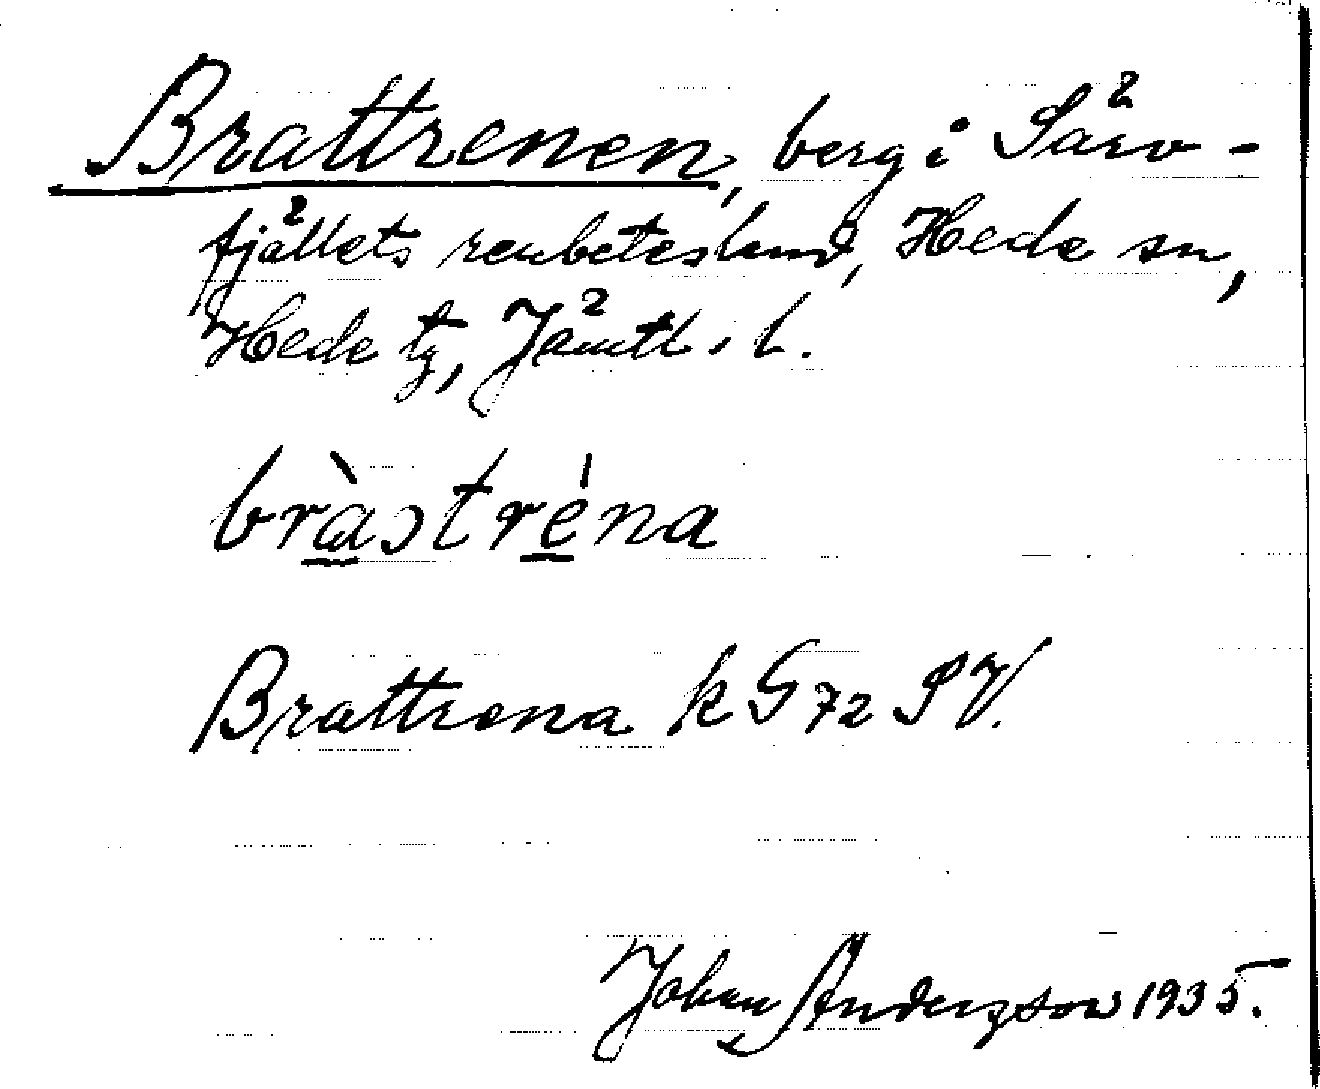 Brattrenen, berg i Särv-
fjällets renbetesland, Hede sn,
Hede tg, Jämtl. l.
bràstréna
Brattrena k G 72 SV.
Johan Anderzson 1935.